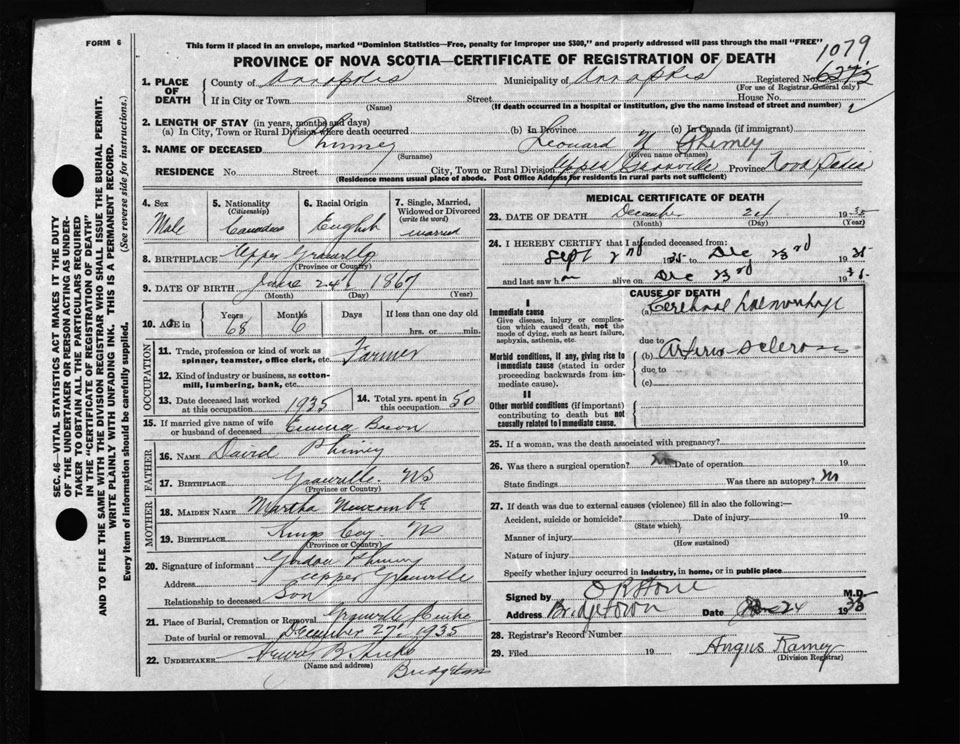 FORM 6
This form if placed in an envelope, marked "Dominion Statistics—Free, penalty for improper use $300," and properly addressed will pass through the mail "FREE"
1079
PROVINCE OF NOVA SCOTIA—CERTIFICATE OF REGISTRATION OF DEATH
1. PLACE OF DEATH County of Annapolis Municipality of Annapolis Registered No.
(For use of Registrar General only)
If in City or Town Street House No.
(Name) (If death occurred in a hospital or institution, give the name instead of street and number)
2. LENGTH OF STAY (in years, months and days)
(a) In City, Town or Rural Division where death occurred (b) In Province (c) In Canada (if immigrant)
3. NAME OF DECEASED Phinney Leonard Phinney
(Surname) (Given name or names)
RESIDENCE No. Street City, Town or Rural Division Upper Granville Province Nova Scotia
(Residence means usual place of abode. Post Office Address for residents in rural parts not sufficient)
4. Sex Male
5. Nationality (Citizenship) Canadian
6. Racial Origin English
7. Single, Married, Widowed or Divorced (write the word) married
8. BIRTHPLACE Upper Granville
(Province or Country)
9. DATE OF BIRTH June 24 1867
(Month) (Day) (Year)
10. AGE in Years 68 Months 6 Days If less than one day old hrs. or min.
OCCUPATION
11. Trade, profession or kind of work as spinner, teamster, office clerk, etc. Farmer
12. Kind of industry or business, as cotton-mill, lumbering, bank, etc.
13. Date deceased last worked at this occupation 1935
14. Total yrs. spent in this occupation 50
15. If married give name of wife or husband of deceased Emma Bacon
FATHER
16. NAME David Phinney
17. BIRTHPLACE Granville NS
(Province or Country)
MOTHER
18. MAIDEN NAME Martha Newcombe
19. BIRTHPLACE Kings Coy NS
(Province or Country)
20. Signature of informant Gordon Phinney
Address Upper Granville
Relationship to deceased Son
21. Place of Burial, Cremation or Removal Granville Centre
Date of burial or removal December 27, 1935
22. UNDERTAKER
(Name and address)
Bridgetown
MEDICAL CERTIFICATE OF DEATH
23. DATE OF DEATH December 24 1935
(Month) (Day)
24. I HEREBY CERTIFY that I attended deceased from:
Sept 2nd 1935 to Dec 23rd 1935
and last saw h alive on Dec 23rd 1935
CAUSE OF DEATH
I
Immediate cause
Give disease, injury or complication which caused death, not the mode of dying, such as heart failure, asphyxia, asthenia, etc.
(a) Cerebral haemorrhage
due to
Morbid conditions, if any, giving rise to immediate cause (stated in order proceeding backwards from immediate cause).
(b) Arterio sclerosis
due to
(c)
II
Other morbid conditions (if important) contributing to death but not causally related to immediate cause.
25. If a woman, was the death associated with pregnancy?
26. Was there a surgical operation? No Date of operation 19
State findings Was there an autopsy? No
27. If death was due to external causes (violence) fill in also the following:—
Accident, suicide or homicide? Date of injury 19
(State which)
Manner of injury
(How sustained)
Nature of injury
Specify whether injury occurred in industry, in home, or in public place
Signed by M.D.
Address Bridgetown Date 24 1935
28. Registrar's Record Number
29. Filed 19 Angus Ramey
(Division Registrar)
SEC. 46—VITAL STATISTICS ACT MAKES IT THE DUTY
OF THE UNDERTAKER OR PERSON ACTING AS UNDER-
TAKER TO OBTAIN ALL THE PARTICULARS REQUIRED
IN THE "CERTIFICATE OF REGISTRATION OF DEATH"
AND TO FILE THE SAME WITH THE DIVISION REGISTRAR WHO SHALL ISSUE THE BURIAL PERMIT.
WRITE PLAINLY WITH UNFADING INK. THIS IS A PERMANENT RECORD.
Every item of information should be carefully supplied. (See reverse side for instructions.)